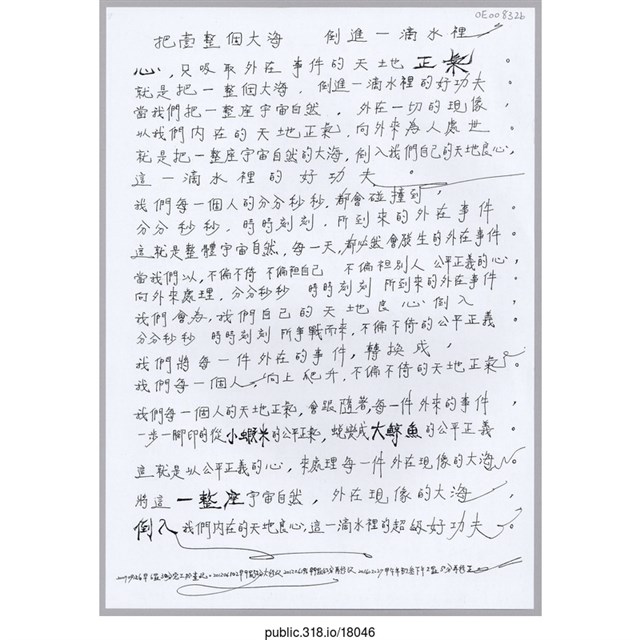 OE00832b
把壹整個大海 倒進一滴水裡
心，只吸取外在事件的天地正氣。
就是把一整個大海，倒進一滴水裡的好功夫。
當我們把一整座宇宙自然，外在一切的現像，
以我們内在的天地正氣，向外來為人處世。
就是把一整座宇宙自然的大海，倒入我們自己的天地良心，
這一滴水裡的好功夫。
我們每一個人的分分秒秒，都會碰撞到，
分分秒秒，時時刻刻，所到來的外在事件。
這就是整體宇宙自然，每一天，都必然會發生的外在事件。
當我們以，不偏不倚 不偏袒自己 不偏袒別人 公平正義的心，
向外來處理，分分秒秒 時時刻刻 所到來的外在事件。
我們會為，我們自己的天地良心倒入，
分分秒秒 時時刻刻 所爭戰而來，不偏不倚的公平正義。
我們將每一件外在的事件，轉換成，
我們每一個人，向上爬升，不偏不倚的天地正氣。
我們每一個人的天地正氣，會跟隨著，每一件外來的事件，
一步一腳印的從小蝦米的公平正氣，蛻變成大鯨魚的公平正義。
這就是以公平正義的心，來處理每一件外在現像的大海。
將這一整座宇宙自然，外在現像的大海，
倒入我們内在的天地良心，這一滴水裡的超級好功夫。
public.318.io/18046